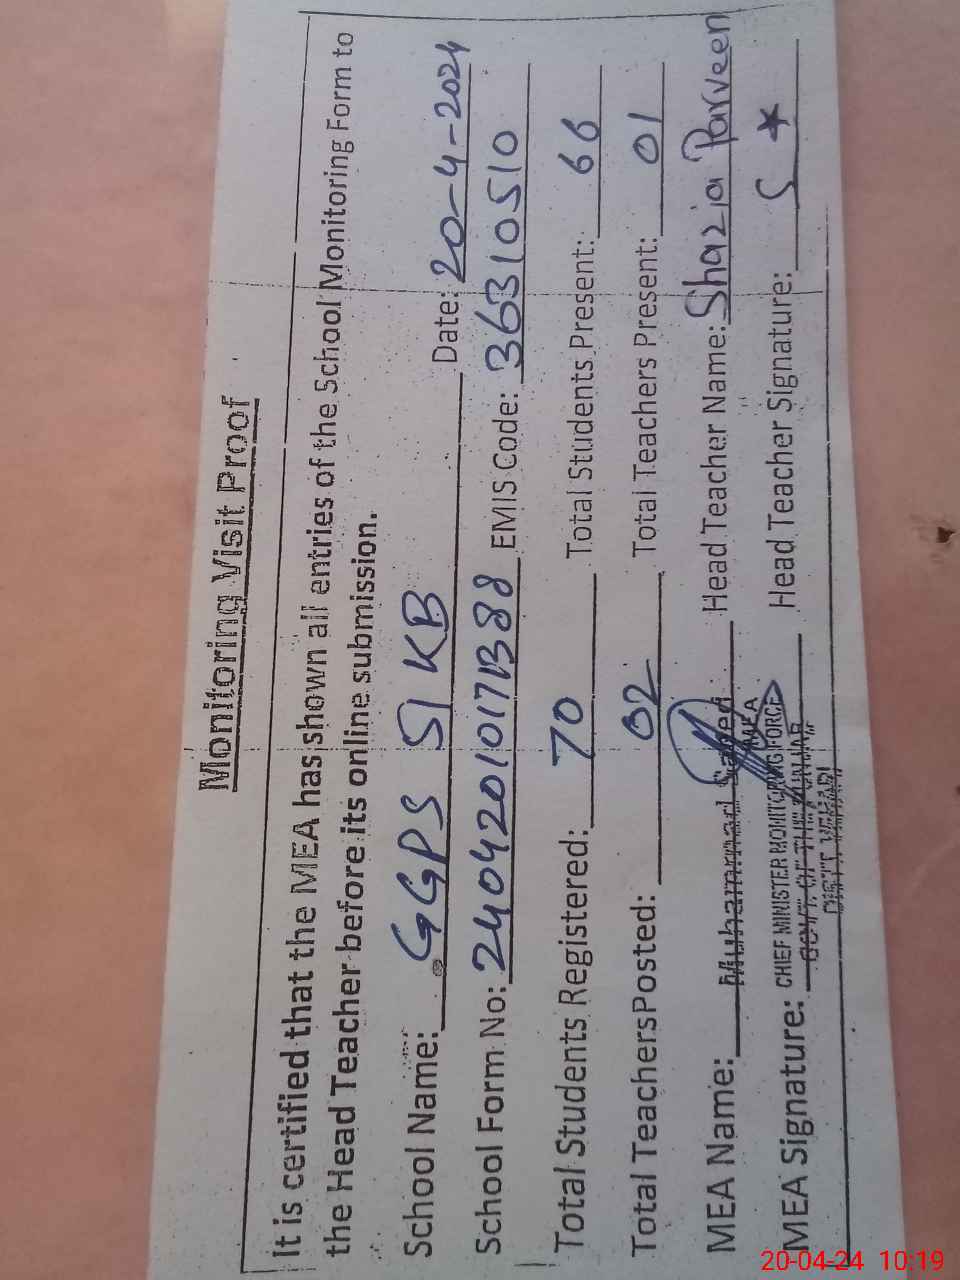 Monitoring Visit Proof
It is certified that the MEA has shown all entries of the School Monitoring Form to
the Head Teacher before its online submission.
School Name: GGPS 51 KB Date: 20-4-2024
School Form No: EMIS Code: 36310510
Total Students Registered: 70 Total Students Present: 66
Total Teachers Posted: 02 Total Teachers Present: 01
MEA Name: Muhammad Saeed Head Teacher Name: Shazia Parveen
MEA
MEA Signature: CHIEF MINISTER MONITORING FORCE Head Teacher Signature:
GOVT. OF THE PUNJAB
DISTT. VEHARI
20-04-24 10:19